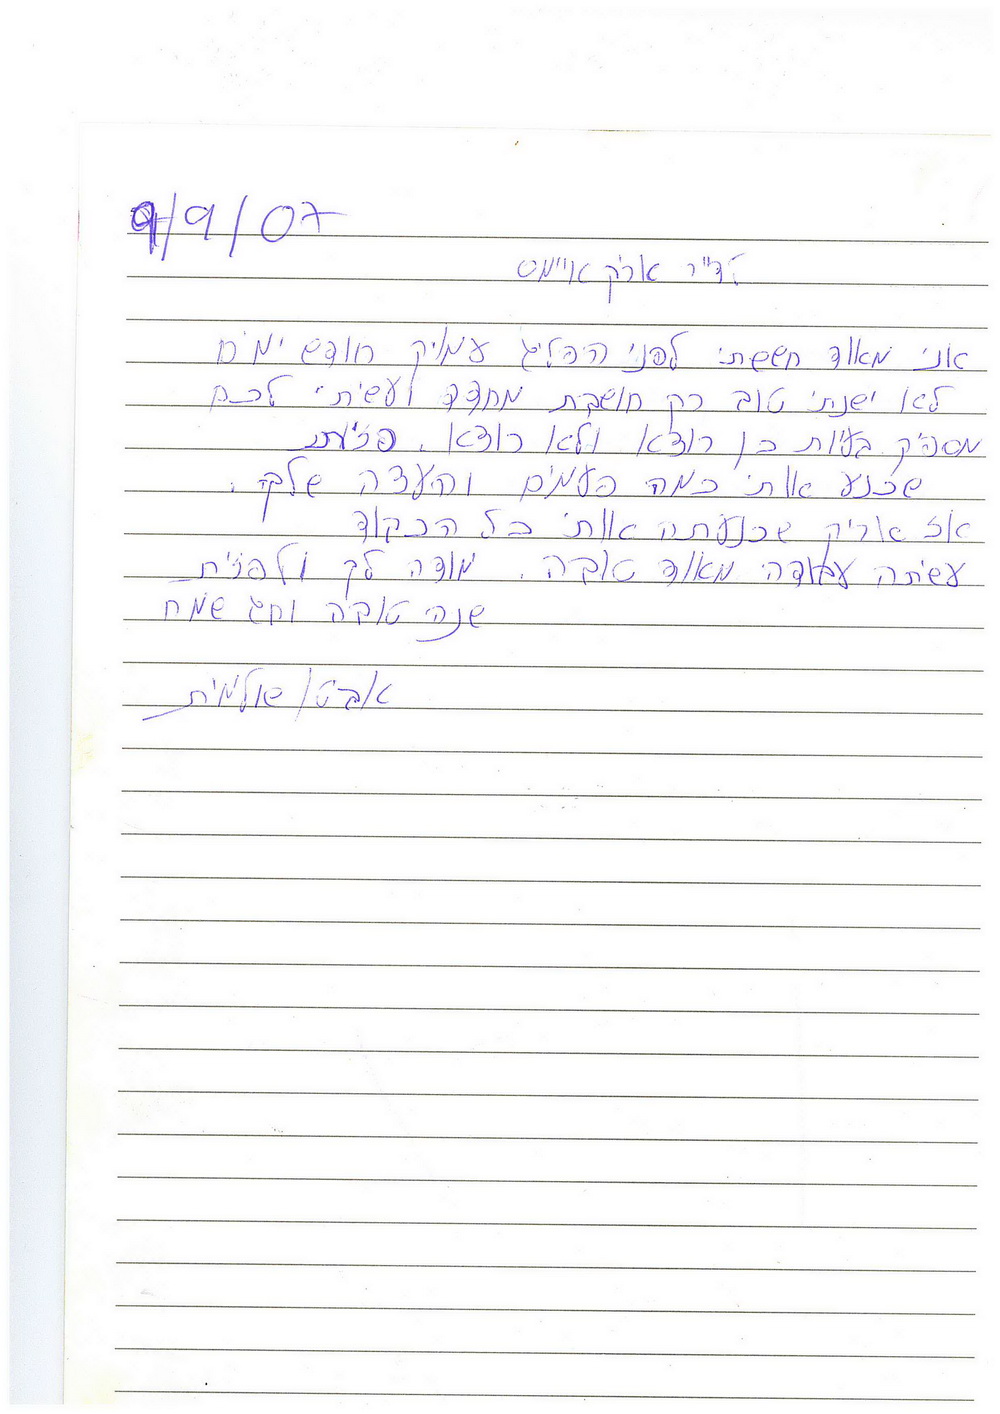 9/9/07
לד"ר אריק
אני מאוד חששתי לפני הפליג עמוק חודש ימים
לא ישנתי טוב רק חושבת מחדד ועשיתי לכם
מספיק בעיות כן רוצא ולא רוצא. פזית
שכנע אותי כמה פעמים והעצה שלך.
אז אריק שכנעתה אותי כל הכבוד
עשיתה עבודה מאוד טובה. מודה לך ולפזית
שנה טובה וחג שמח
אביטן שולמית